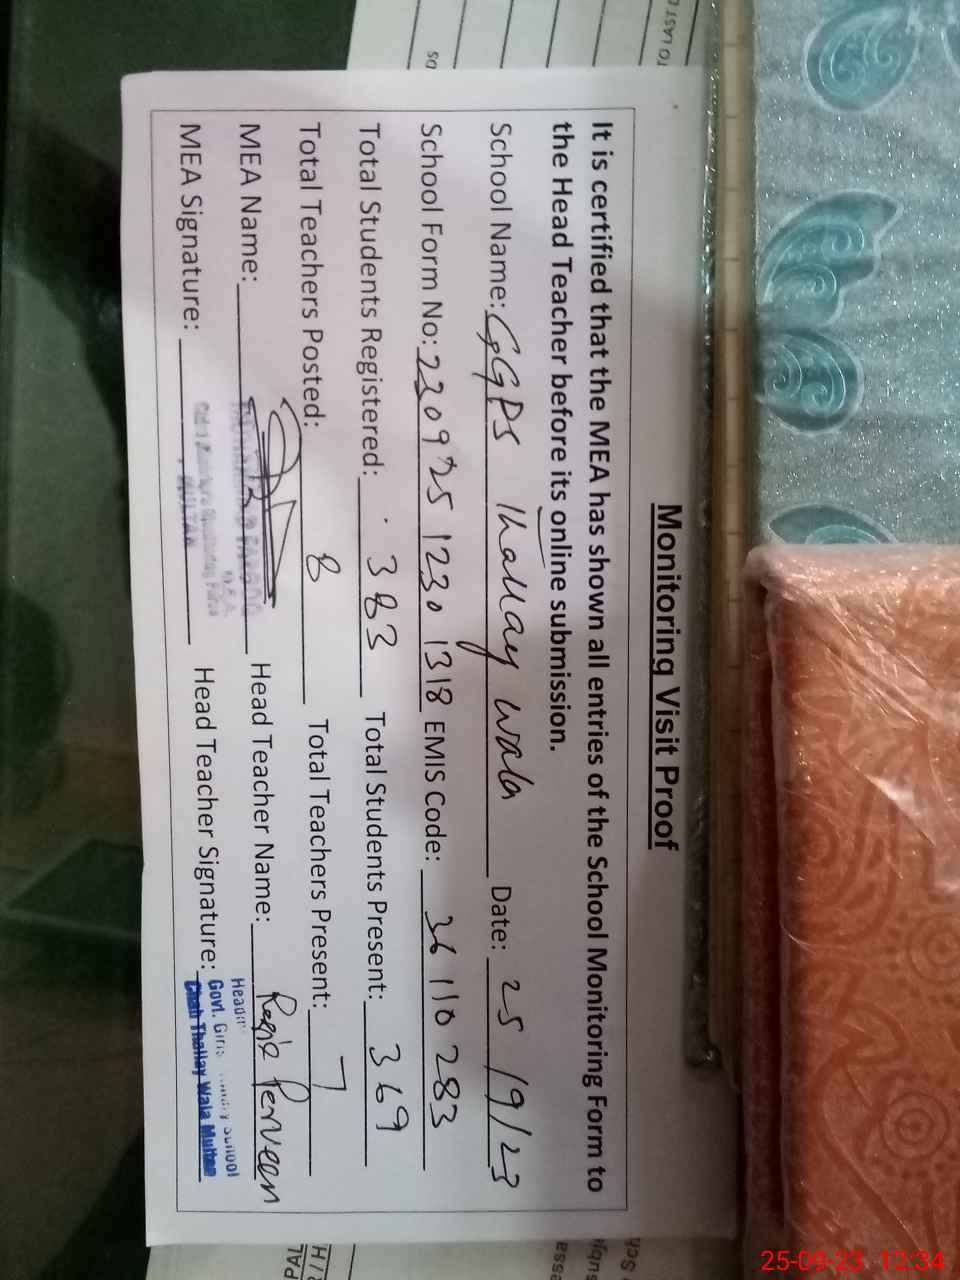 Monitoring Visit Proof
It is certified that the MEA has shown all entries of the School Monitoring Form to
the Head Teacher before its online submission.
School Name: GGPS Thallay wala Date: 25/9/23
School Form No: 230925 1230 1318 EMIS Code: 36110283
Total Students Registered: 383 Total Students Present: 369
Total Teachers Posted: 8 Total Teachers Present: 7
MEA Name: Head Teacher Name: Perveen
MEA Signature: Head Teacher Signature:
MULTAN
Govt. Girls School
Chah Thallay Wala Multan
25-09-23 12:34